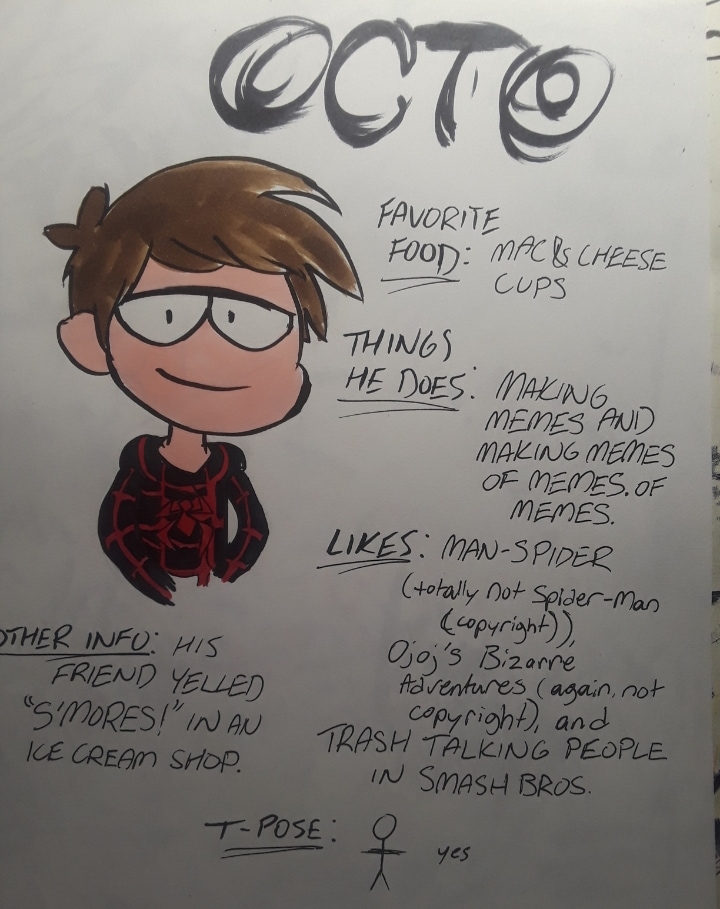 OCTO
FAVORITE
FOOD: MAC & CHEESE
CUPS
THINGS
HE DOES: MAKING
MEMES AND
MAKING MEMES
OF MEMES. OF
MEMES.
LIKES: MAN-SPIDER
(totally not Spider-Man
(copyright)),
Ojoj's Bizarre
Adventures (again, not
copyright), and
TRASH TALKING PEOPLE
IN SMASH BROS.
OTHER INFO: HIS
FRIEND YELLED
"S'MORES!" IN AN
ICE CREAM SHOP.
T-POSE: yes